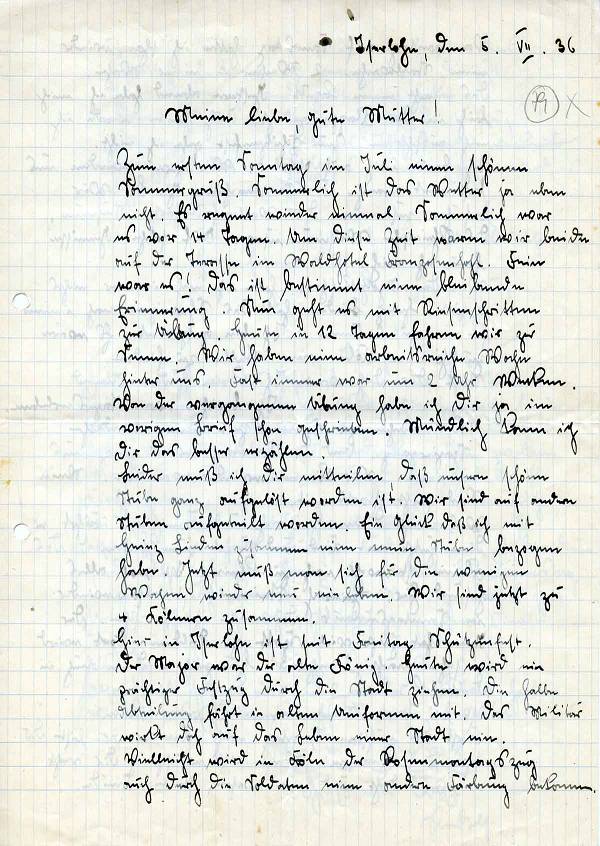 Iserlohn, den 5. VII. 36
Meine liebe, gute Mutter!
Zum ersten Sonntag im Juli einen schönen
Sommergruß. Sommerlich ist das Wetter ja eben
nicht. Es regnet wieder einmal. Sommerlich war
es vor 14 Tagen. Um diese Zeit waren wir beide
auf der Terrasse im Waldhotel Franzosenhohl. Fein
war es! Das ist bestimmt eine bleibende
Erinnerung. Nun geht es mit Riesenschritten
zur Übung. Heute in 12 Tagen fahren wir zur
Senne. Wir haben eine arbeitsreiche Woche
hinter uns. Fast immer war um 2 Uhr Wecken.
Von der vergangenen Übung habe ich Dir ja im
vorigen Brief schon geschrieben. Mündlich kann ich
Dir das besser erzählen.
Leider muß ich Dir mitteilen, daß unsere schöne
Stube ganz aufgelöst worden ist. Wir sind auf andere
Stuben aufgeteilt worden. Ein Glück daß ich mit
Heinz Linden zusammen eine neue Stube bezogen
habe. Jetzt muß man sich für die wenigen
Wochen wieder neu einleben. Wir sind jetzt zu
4 Kölnern zusammen.
Hier in Iserlohn ist seit Freitag Schützenfest.
Der Major war der alte König. Heute wird ein
prächtiger Festzug durch die Stadt ziehen. Die halbe
Abteilung fährt in alten Uniformen mit. Das Militär
wirkt doch auf das Leben einer Stadt ein.
Vielleicht wird in Köln der Rosenmontagszug
auch durch die Soldaten eine andere Färbung bekommen.